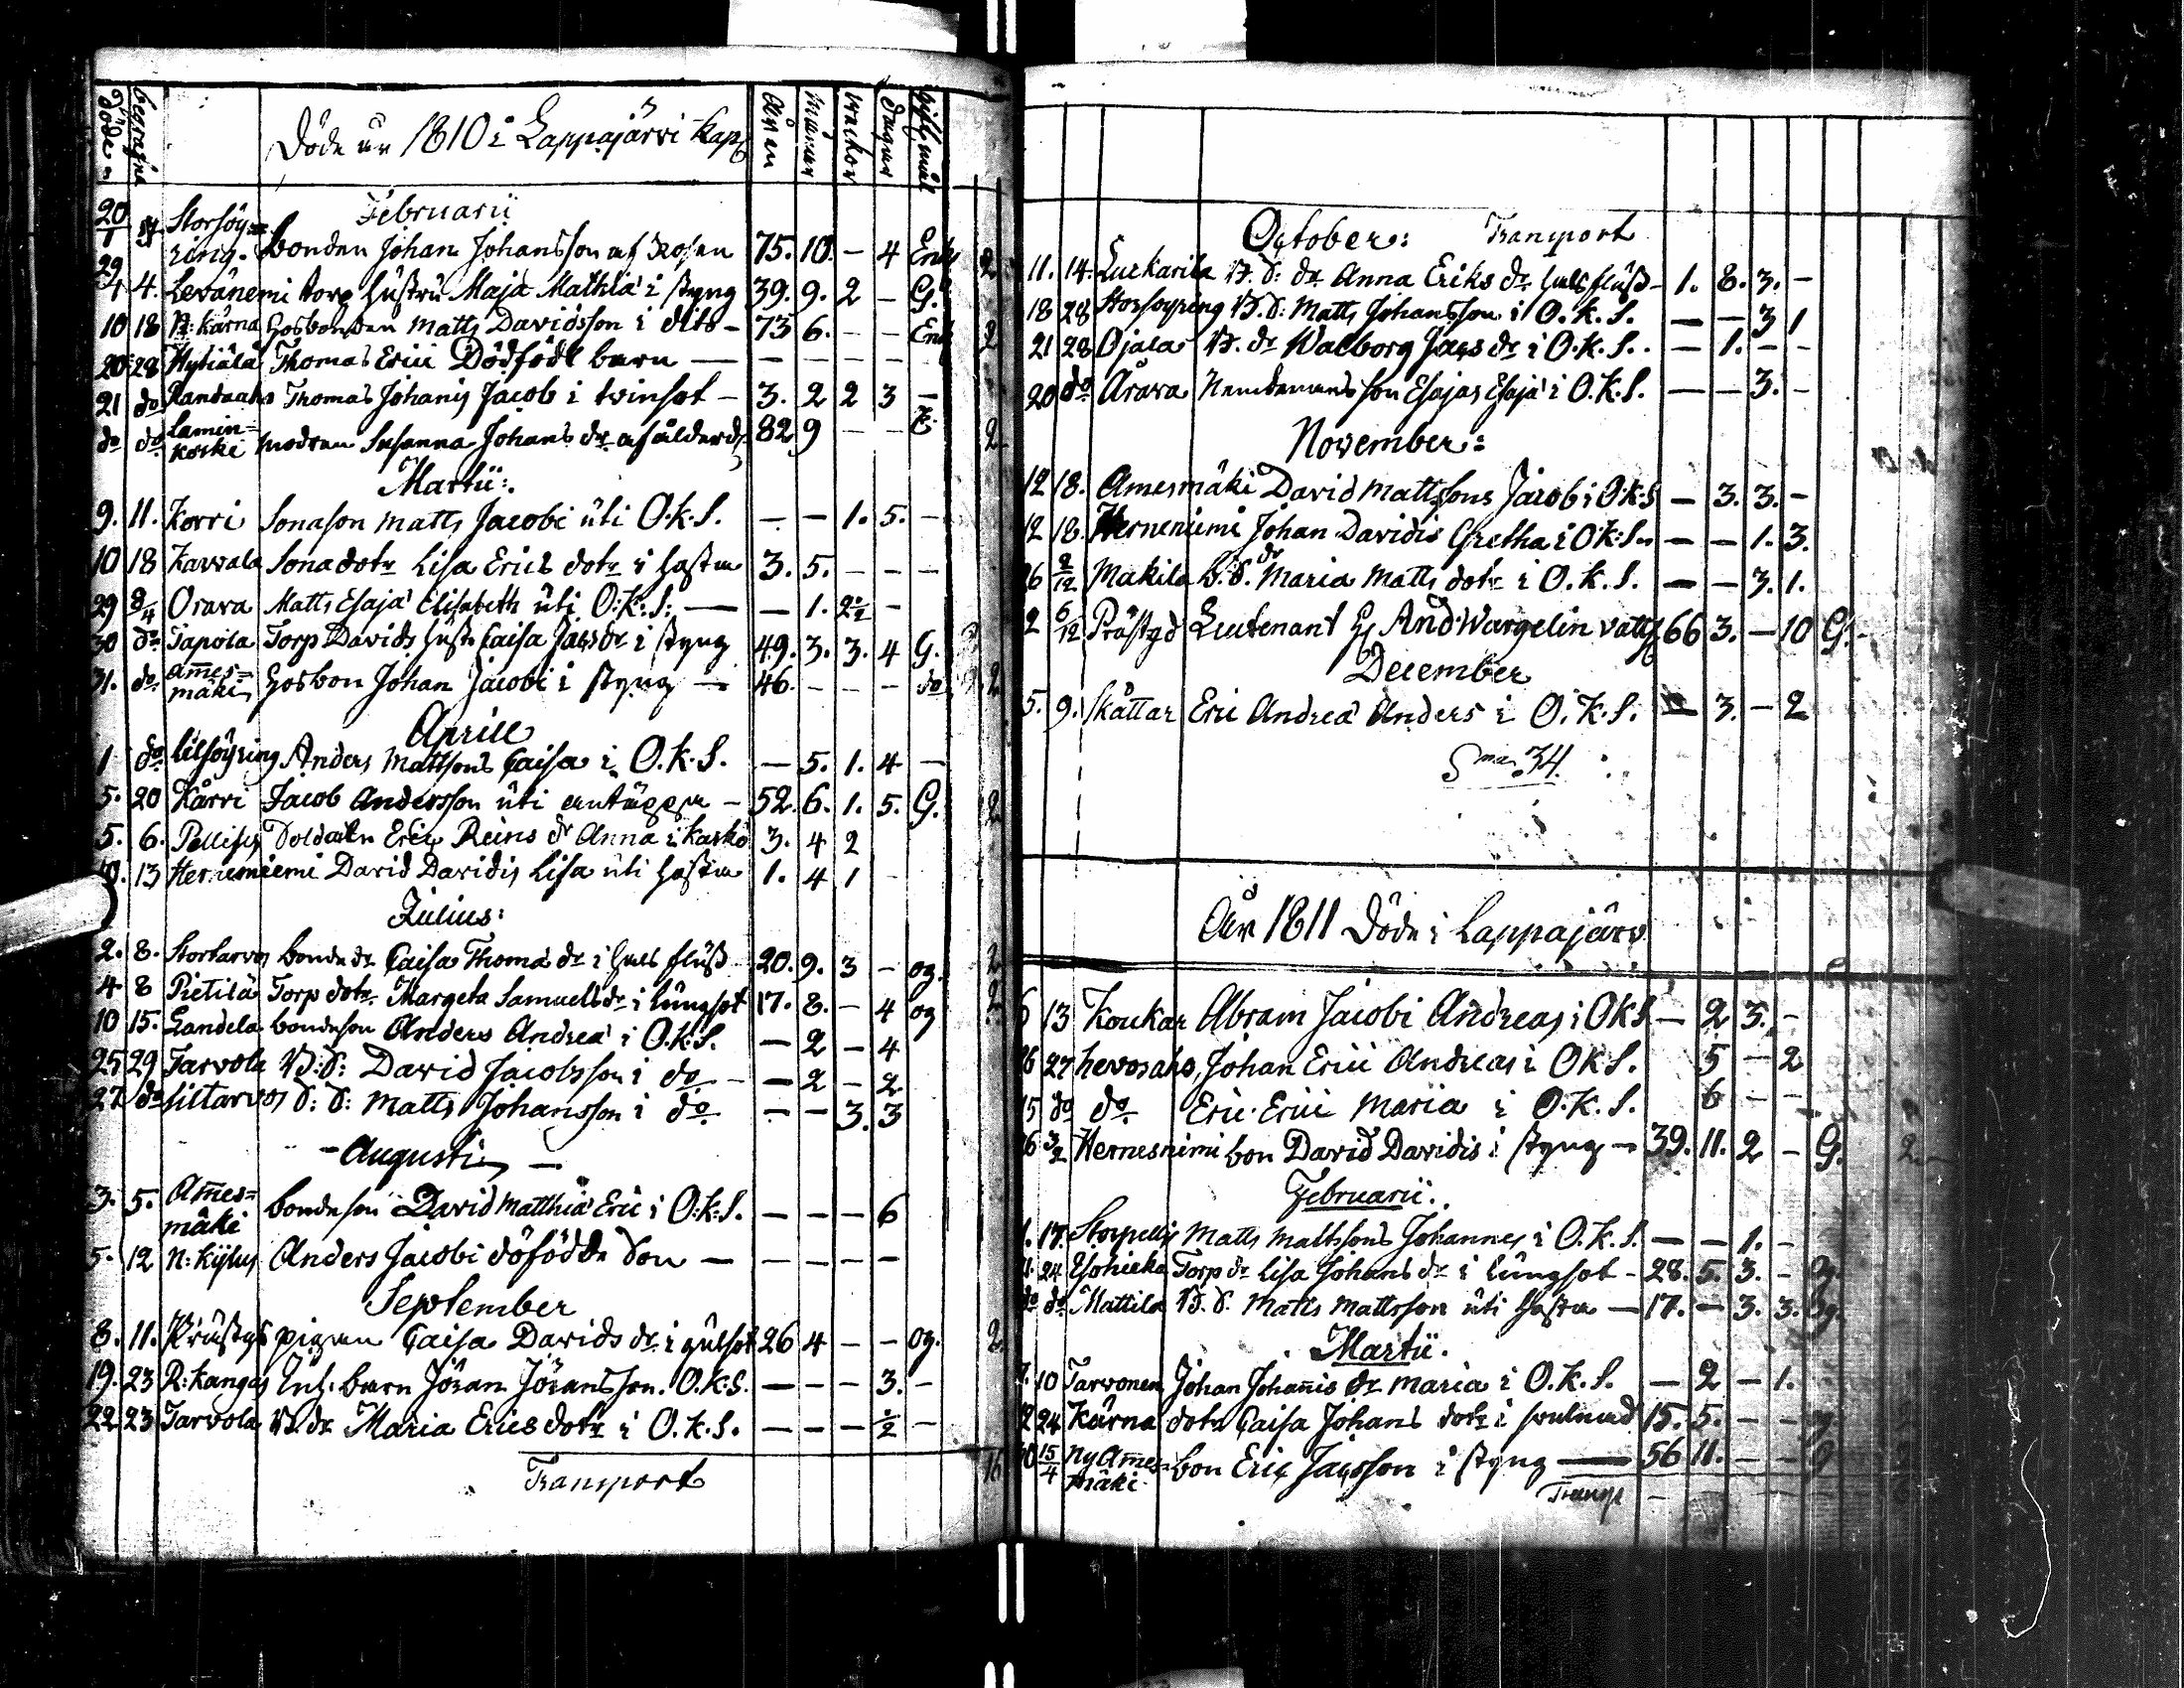 Döde
begrafne
Döde år 1810 i Lappajärvi Kap
åren
månar
wekor
dagar
giftmål
Februarii
20/1 4 Storsöy=
ring. bonden Johan Johansson af Rosen 75. 10. - 4 Enk 2
29/1 4. Levänemi torp hustru Maja Mathiæ i styng 39. 9. 2 - G.
10 18 N: Kärna Gosbonden Matts Davidsson i dito - 73 6. - - Enk 2
20 28 Hytiälä Thomas Erici Dödfödt barn - - - - -
21 do Randaaho Thomas Johanis Jacob i tvinsot - 3. 2 2 3 -
do do Lamin=
koski modren Susanna Johans dr af ålderd. 82 9 - - E. 2
Martii:
9. 11. Korri Sonason Matts Jacobi uti O.k.S. - - 1. 5. -
10 18 Karvala Sonadotr Lisa Erics dotr i hosta 3. 5. - - -
29 8/4 Orava Matts Esajæ Elisabeth uti O:K:S: - - 1. 2½ -
30 do Tapola Torp Davids hust Caisa Jacs dr i styng 49. 3. 3. 4 G.
31. do Ames=
mäki Gosbon Johan Jacobi i styng - 46. - - - do 2
Aprill
1 do Lilsöyring Anders Mattsons Caisa i O.k.S. - 5. 1. 4 -
5. 20 Kårri Jacob Andersson uti - 52. 6. 1. 5. G. 2
5. 6. Pellises Soldaten Eric Reins dr Anna i kasko 3. 4 2
10. 13 Hernesniemi David Davidis Lisa uti hosta 1. 4 1 -
Julius:
2. 8. Stortarvos bonde dr Caisa Thomæ dr i hals fluss 20. 9. 3 - og. 2
4 8 Pietilä Torp dotr Margeta Samuels dr i lungsot 17. 8. - 4 og 2
10 15. Landela bondeson Anders Andreæ i O.k.S. - 2 - 4
25 29 Tarvola B:S: David Jacobsson i do - - 2 - 2
27 do Liltarvos S: S: Matts Johansson i do - - 3. 3
- Augusti -
3. 5. Ames=
mäki bondeson David Matthiæ Eric i O:k:S. - - - 6
5. 12 N: Kijhus Anders Jacobi döfödde Son - - - - -
September
8. 11. Prästgd pigan Caisa Davids dr i gulsot 26 4 - - og. 2
19. 23 R: kangas Inh: barn Jöran Jöransson. O.K:S. - - - 3. -
22 23 Tarvola B. dr Maria Erics dotr i O.k.S. - - - ½ -
Transport 16
October: Transport
11. 14. Luckarila B. S: dr Anna Eriks dr hals fluss - 1. 8. 3. -
18 28 Storsöyring B.S: Matts Johansson i O.k.S. - - 3 1
21 28 Ojala B. dr Walborg Jacs dr i O.k.S. - 1. - -
20 do Årava Nemdemans son Esajas Esajæ i O.k.S. - - 3. -
November:
12 18. Amesmäki David Mattsons Jacob i O:k:S - 3. 3. -
12 18. Hernesniemi Johan Davidis Gretha i O:k:S. - - 1. 3.
26 2/12 Makila B.S. dr Maria Matts dotr i O.k.S. - - 3. 1.
2 6/12 Prästgd Leutenant And: Wargelin vatts 66 3. - 10 G.
December
5. 9. Skåttar Eric Andreæ Anders i O.K.S. - 3. - 2
Sma 34.
Åår 1811 Döde i Lappajärv
6 13 Koukar Abram Jacobi Andreas i OKS - 2 3. -
26 27 hevosaho, Johan Erici Andreas i OKS. 5 - 2
15 do do Eric Erici Maria i O.K.S. 6 - -
26 3/2 Hernesnimi bon David Davidis i styng - 39. 11. 2 - G. 2
Februarii.
1. 17. Storpellis Matts Mattsons Johannes i O.K.S. - - 1. -
11. 24 Torp dr Lisa Johans dr i lungsot - 28. 5. 3. - og.
do do Mattila B.S. Matts Mattsson uti hosta - 17. - 3. 3. og.
Martii.
7. 10 Tarvonen Johan Johanis dr Maria i O.K.S. - 2 - 1.
12 24 Kärna dotr Caisa Johans dotr i 15. 5. - - og.
30 15/4 Ny Ames=
mäki bon Eric Jacsson i styng - 56 11. - - G 2
Transp